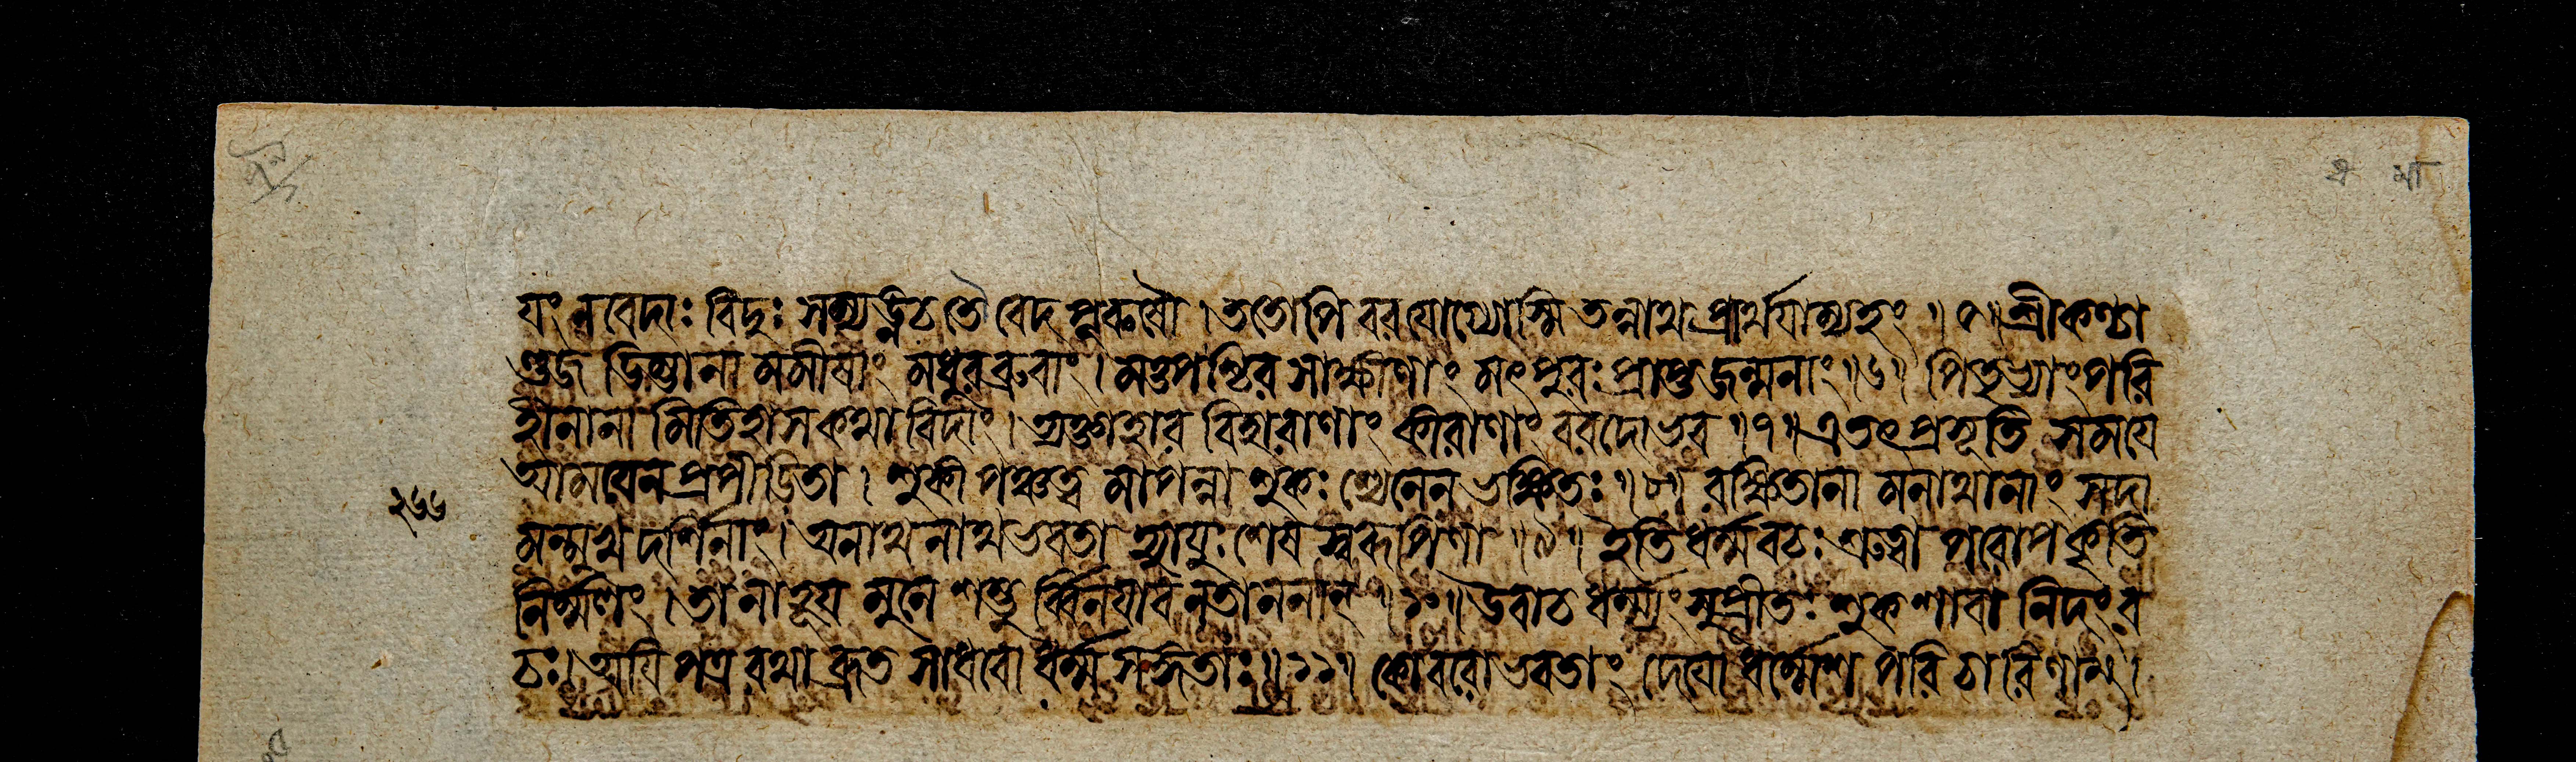 যং ন বেদাঃ বিদুঃ সম্যঙ্ন চ তৌ বেদপুরুষৌ । ততোপি বরযোগ্যোস্মি তন্নাথ প্রার্থযাম্যহং ॥ ৫ ॥ শ্রীকণ্ঠা
ণ্ডজ ডিম্ভানা মমীষাং মধুরব্রুবাং । মত্তপশ্চির সাক্ষীণাং মৎপুরঃ প্রাপ্তজন্মনাং ॥ ৬ ॥ পিতৃভ্যাং পরি
হীনানা মিতিহাসকথাবিদাং । ত্যক্তাহার বিহারাণাং কীরাণাং বরদো ভব ॥ ৭ ॥ এতৎ প্রসূতি সমযে
আমযেন প্রপীডিতা । শুকী পঞ্চত্ব মাপন্না শুকঃ শ্যেনেন ভক্ষিতঃ ॥ ৮ ॥ রক্ষিতানা মনাথানাং সদা
২৬৬
মন্মুখ দর্শিনাং । অনাথনাথ ভবতা আযুঃ শেষ স্বরূপিণা ॥ ৯ ॥ ইতি ধর্ম্মবচঃ শ্রুত্বা পরোপকৃতি
নির্ম্মলং । তানাহূয মুনে শম্ভু র্ব্বিনযাবনতাননান্ ॥ ১০ ॥ উবাচ ধর্ম্মং সুপ্রীতঃ শুকশাবা নিদং ব
চঃ । অযি পত্ররথা ব্রূত সাধবো ধর্ম্মসঙ্গতাঃ ॥ ১১ ॥ কো বরো ভবতাং দেযো ধর্ম্মেশ পরিচারিণাম্ ।